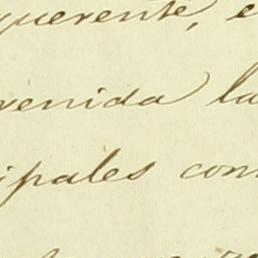 querente, e
venida la
ipales com